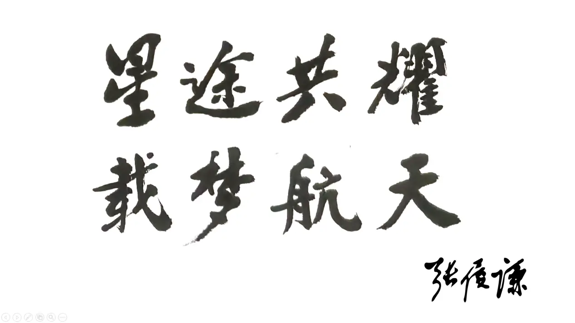 星途共耀
载梦航天
张履谦